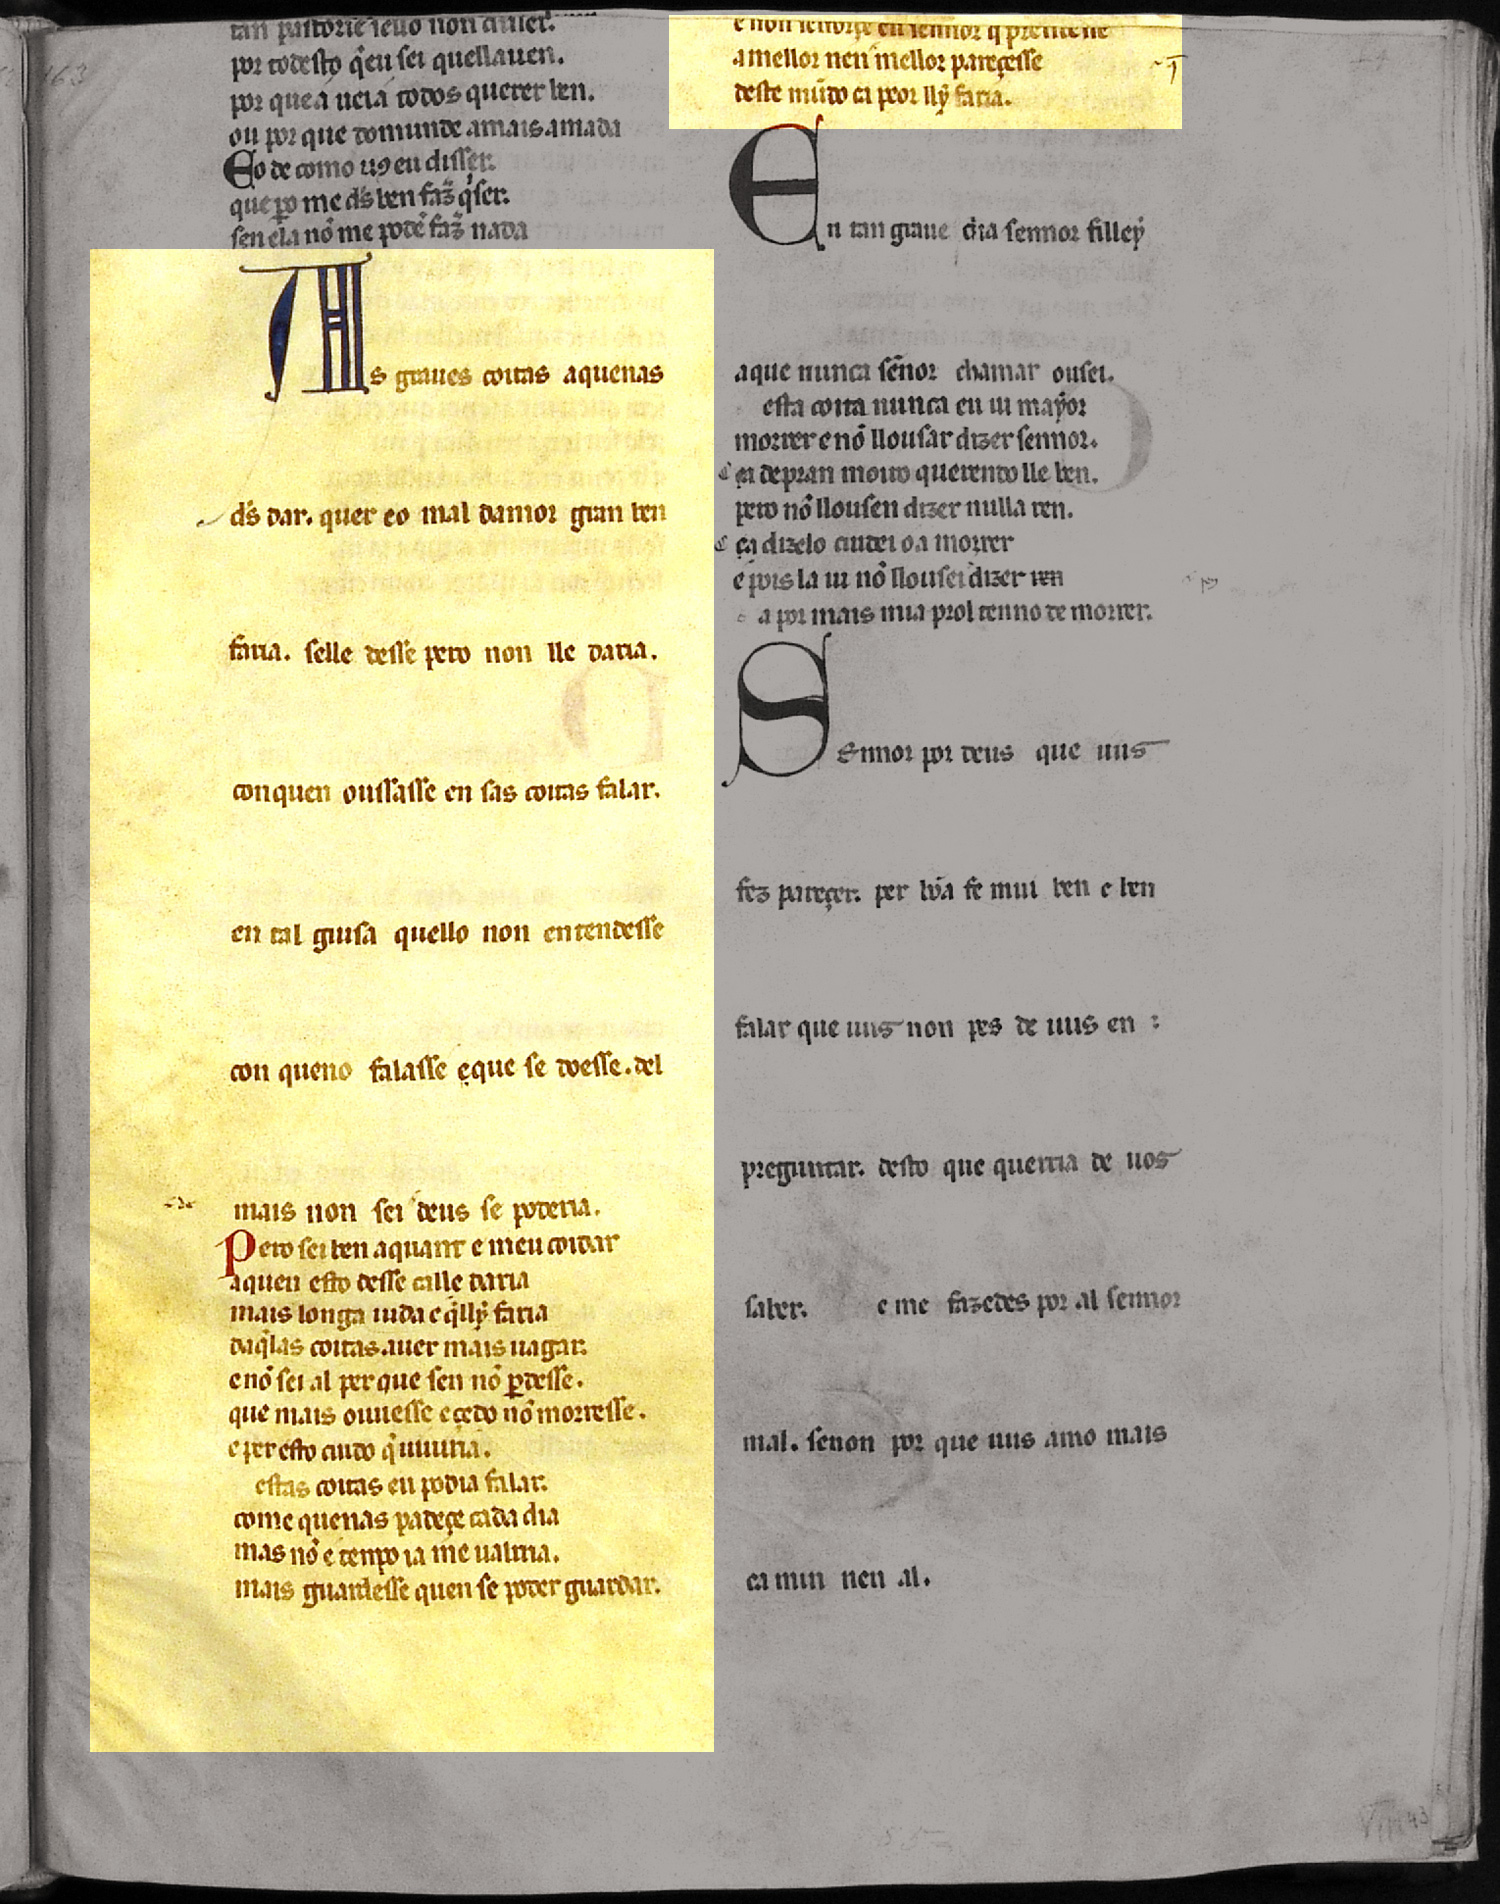 tan pastorie ieuo non auiei.
por todesto q̃eu sei quellauen.
por que a ueia todos querer ben.
ou por que domunde amais amada
Eo de como uꝯ eu disser.
que ꝑo me ds̃ ben faz̃ q̃ser.
sen ela nõ me pode faz̃ nada
As graues coitas aquenas
ds̃ dar. quer eo mal damor gran ben
faria. selle desse pero non lle daria.
conquen oussasse en sas coitas falar.
en tal guisa quello non entendesse
con queno falasse e que se doesse. del
mais non sei deus se poderia.
Pero sei ben aquant e meu coidar
aquen esto desse calle daria
mais longa uida e q̃lly faria
daq̃las coitas auer mais uagar.
e nõ sei al per que sen nõ ꝑdesse.
que mais ouuesse e çedo nõ morresse.
e per esto cuido q̃ uiuiria.
estas coitas eu podia falar.
come quenas padeçe cada dia
mas nõ e tempo ia me ualrria.
mais guardesse quen se poder guardar.
e non
a mellor nen mellor pareçesse
deste mũdo ca peor llỹ faria.
En tan graue dia sennor filley
a que nunca señor chamar ousei.
esta coita nunca eu ui mayor
morrer e nõ llousar dizer sennor.
ca depran moiro querendo lle ben.
pero nõ llousen dizer nulla ren.
ca dizelo cuidei o a morrer
e pois la ui nõ llousei dizer ren
a por mais mia prol tenno de morrer.
Sennor por deus que uus
fez pareçer. per bõa fe mui ben e ben
falar que uus non pes de uus en :
preguntar. desto que querria de uos
saber. e me fazedes por al sennor
mal. senon por que uus amo mais
ca min nen al.